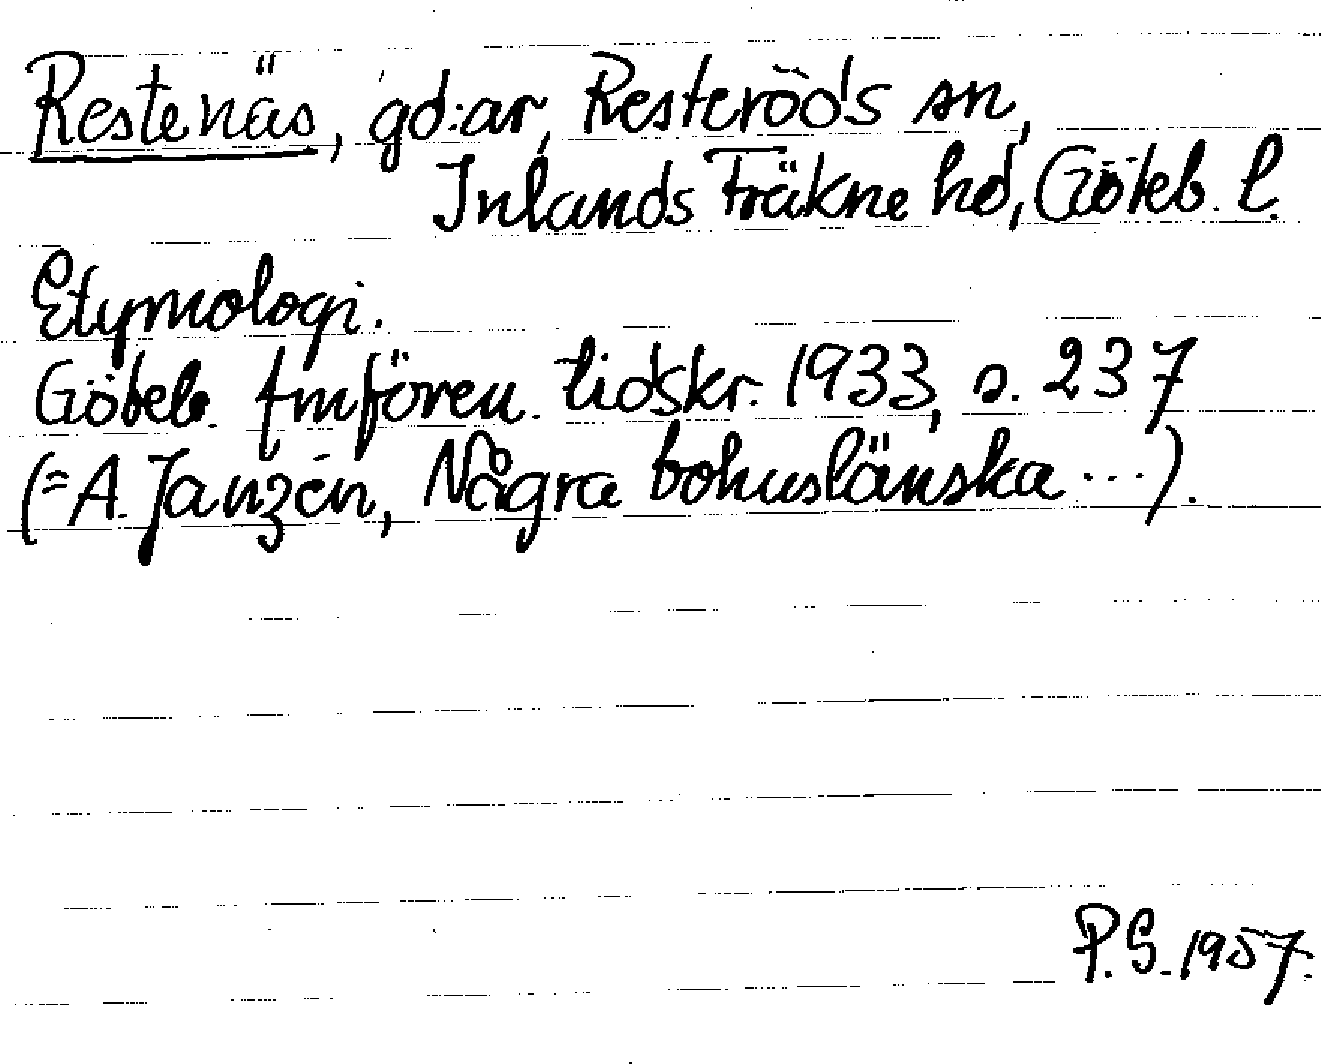 Restenäs, gd:ar, Resteröds sn,
Inlands Fräkne hd, Göteb. l.
Etymologi.
Göteb. fmfören. tidskr. 1933, s. 237
(= A. Janzén, Några bohuslänska ...).
P.S. 1957.